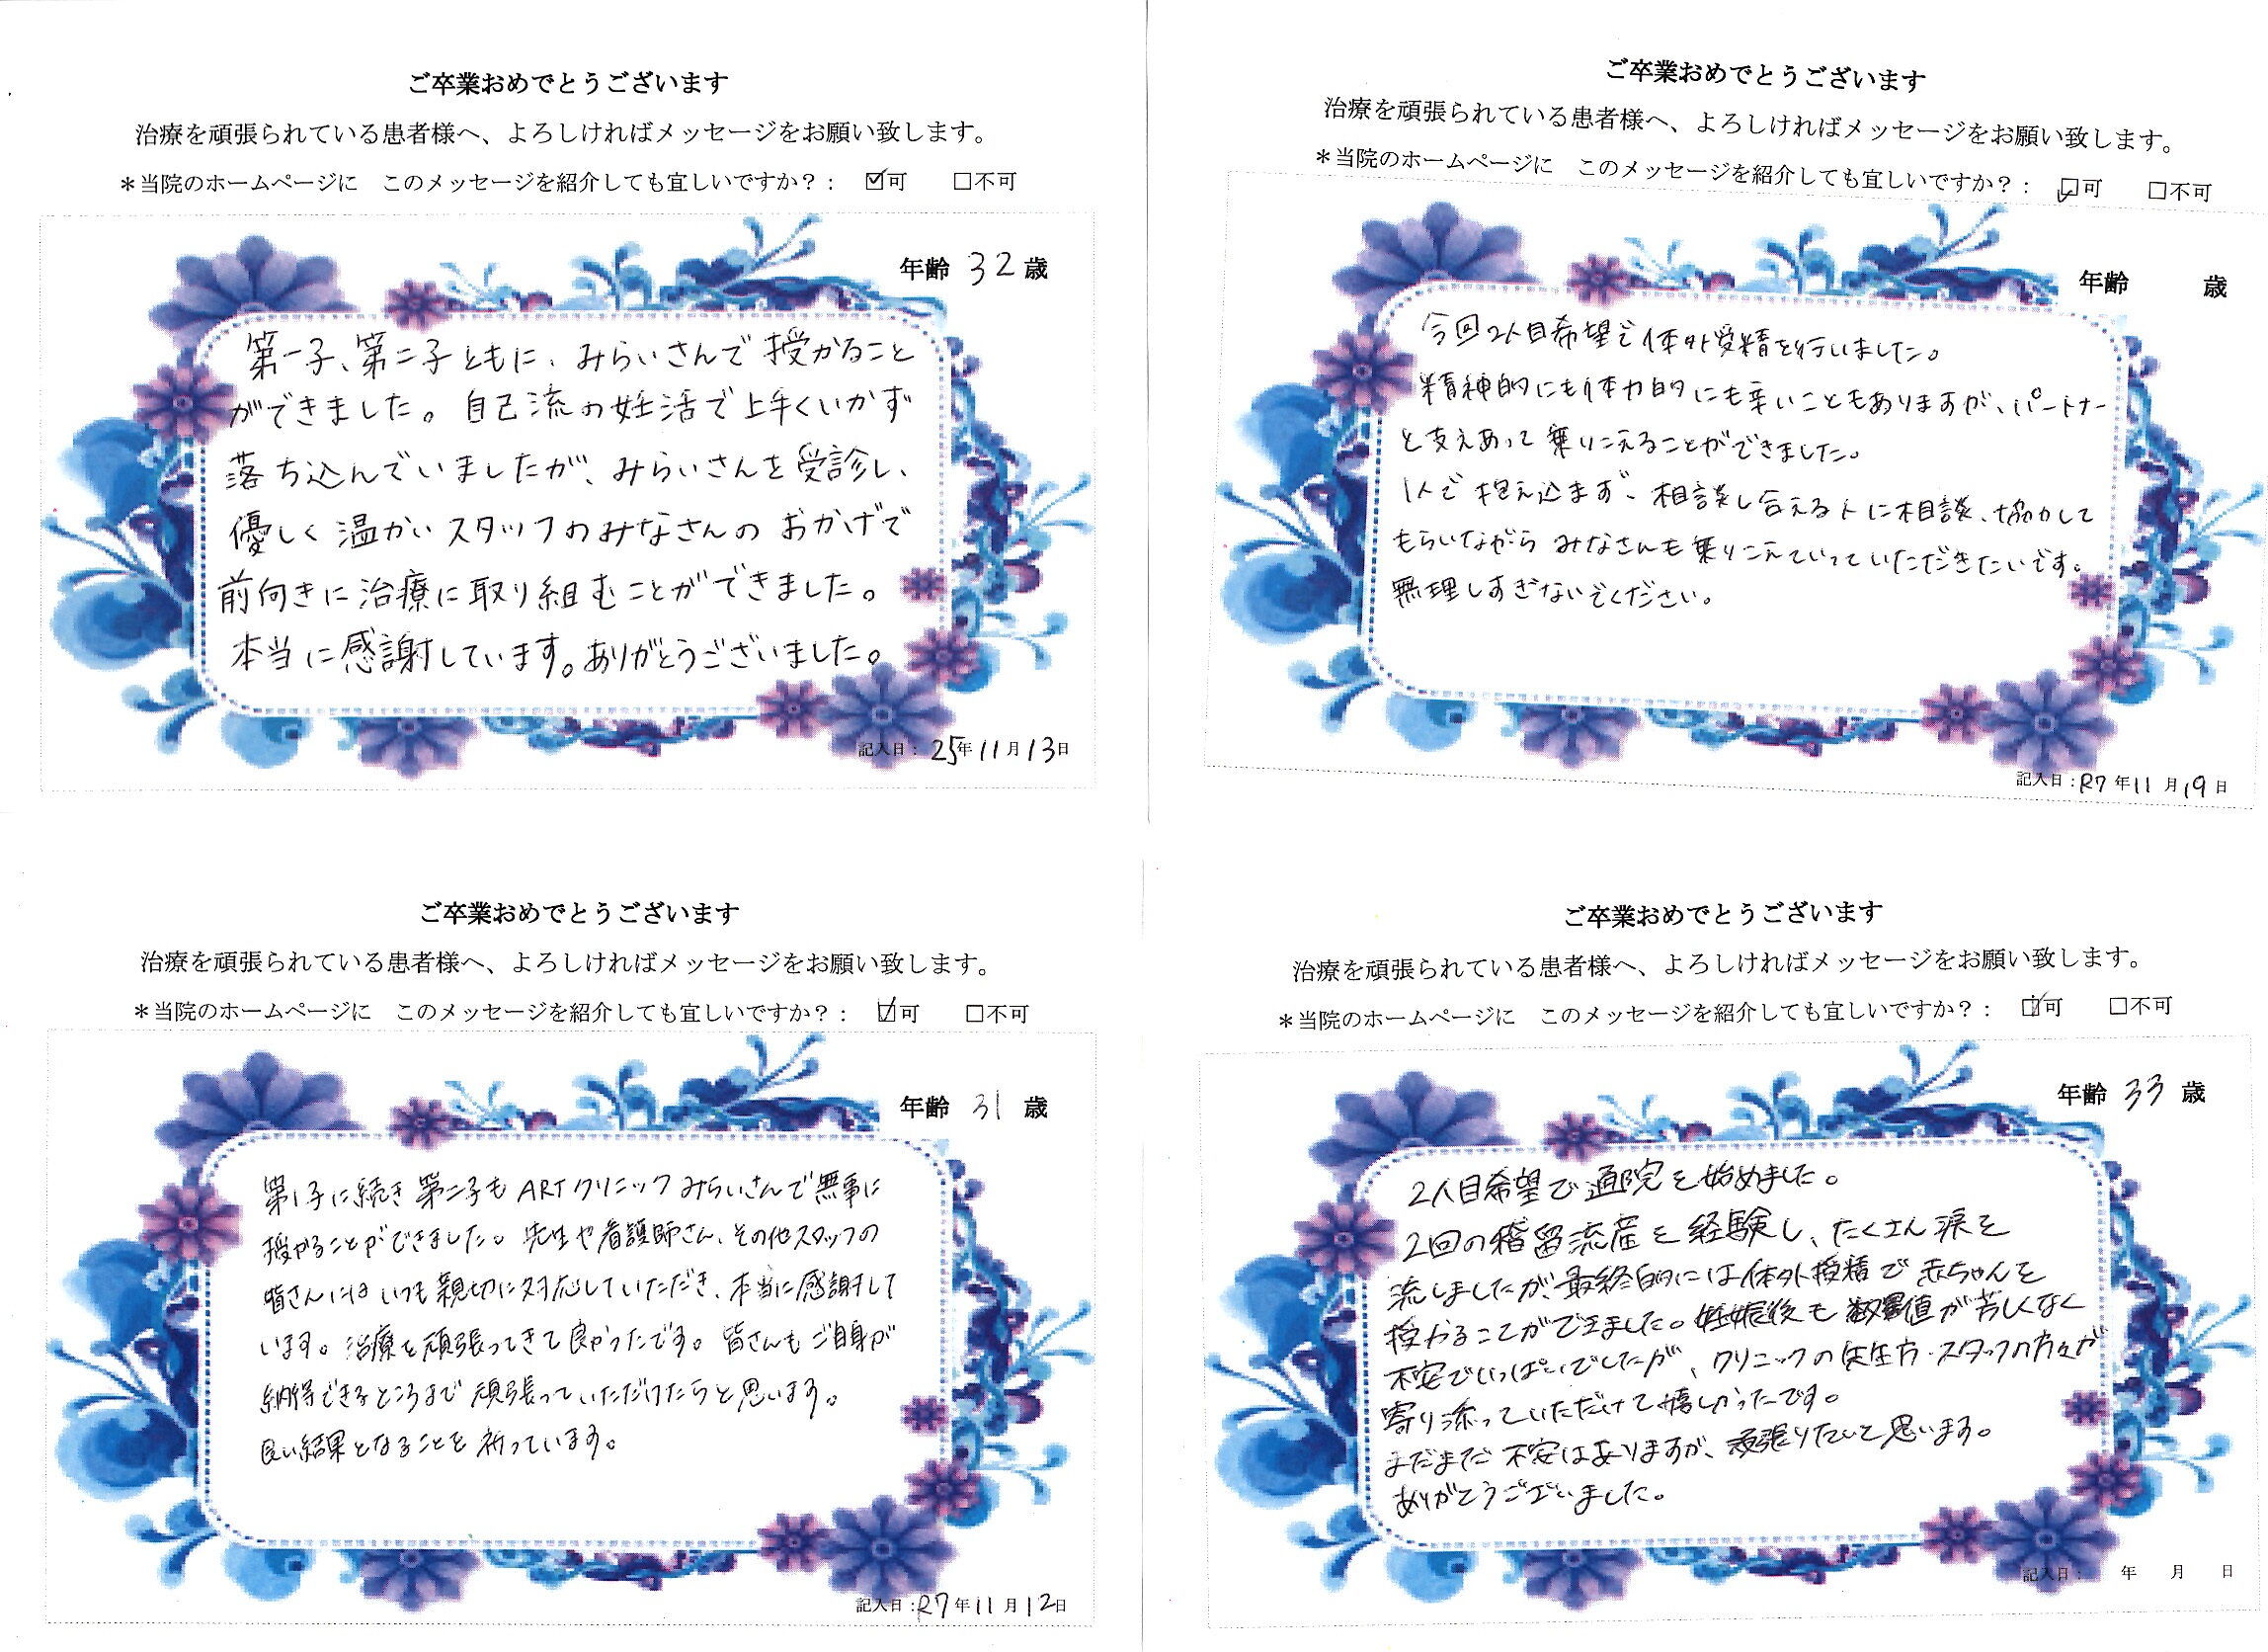 ご卒業おめでとうございます
治療を頑張られている患者様へ、よろしければメッセージをお願い致します。
＊当院のホームページに　このメッセージを紹介しても宜しいですか？： ☑可 □不可
年齢 32 歳
第一子、第二子ともに、みらいさんで授かること
ができました。自己流の妊活で上手くいかず
落ち込んでいましたが、みらいさんを受診し、
優しく温かいスタッフのみなさんのおかげで
前向きに治療に取り組むことができました。
本当に感謝しています。ありがとうございました。
記入日：25年11月13日
ご卒業おめでとうございます
治療を頑張られている患者様へ、よろしければメッセージをお願い致します。
＊当院のホームページに　このメッセージを紹介しても宜しいですか？： ☑可 □不可
年齢 歳
今回2人目希望で体外受精を行いました。
精神的にも体力的にも辛いこともありますが、パートナー
と支えあって乗りこえることができました。
1人で抱え込まず、相談し合える人に相談、協力して
もらいながら みなさんも乗りこえていっていただきたいです。
無理しすぎないでください。
記入日：R7年11月19日
ご卒業おめでとうございます
治療を頑張られている患者様へ、よろしければメッセージをお願い致します。
＊当院のホームページに　このメッセージを紹介しても宜しいですか？： ☑可 □不可
年齢 31 歳
第1子に続き第二子も ARTクリニックみらいさんで無事に
授かることができました。先生や看護師さん、その他スタッフの
皆さんにはいつも親切に対応していただき、本当に感謝して
います。治療を頑張ってきて良かったです。皆さんもご自身が
納得できるところまで頑張っていただけたらと思います。
良い結果となることを祈っています。
記入日：R7年11月12日
ご卒業おめでとうございます
治療を頑張られている患者様へ、よろしければメッセージをお願い致します。
＊当院のホームページに　このメッセージを紹介しても宜しいですか？： ☑可 □不可
年齢 33 歳
2人目希望で通院を始めました。
2回の稽留流産を経験し、たくさん涙を
流しましたが、最終的には体外授精で赤ちゃんを
授かることができました。妊娠後も数値が芳しくなく
不安でいっぱいでしたが、クリニックの先生方・スタッフの方々が
寄り添っていただけて嬉しかったです。
まだまだ不安はありますが、頑張りたいと思います。
ありがとうございました。
記入日： 年 月 日